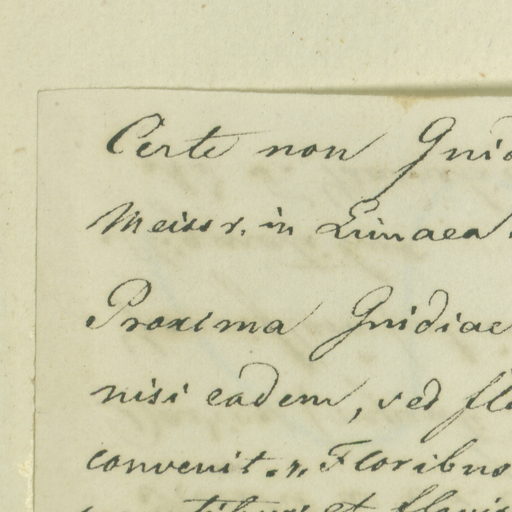 Certe non Gnid
Meissr. in Linnaea
Proxima Gnidiae
nisi eadem, sed flo
convenit. „ Floribus
et flavis